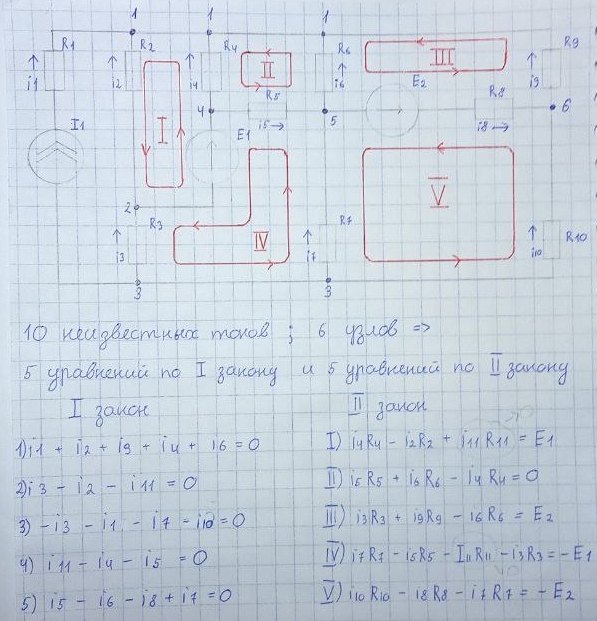 1 1 1
R1 R2 R4 R6 III R9
II
i1 i2 i4 i6 E2 i9
R5 R8
4 5 6
I1 I E1 i5→ i8→
V
2
R3 R7 R10
IV
i3 i7 i10
3 3
10 неизвестных токов ; 6 узлов =>
5 уравнений по I закону и 5 уравнений по II закону
I закон II закон
1) i1 + i2 + i9 + i4 + i6 = 0
2) i3 - i2 - i11 = 0
3) -i3 - i1 - i7 - i10 = 0
4) i11 - i4 - i5 = 0
5) i5 - i6 - i8 + i7 = 0
I) i4R4 - i2R2 + i11R11 = E1
II) i5R5 + i6R6 - i4R4 = 0
III) i3R3 + i9R9 - i6R6 = E2
IV) i7R7 - i5R5 - I11R11 - i3R3 = -E1
V) i10R10 - i8R8 - i7R7 = -E2